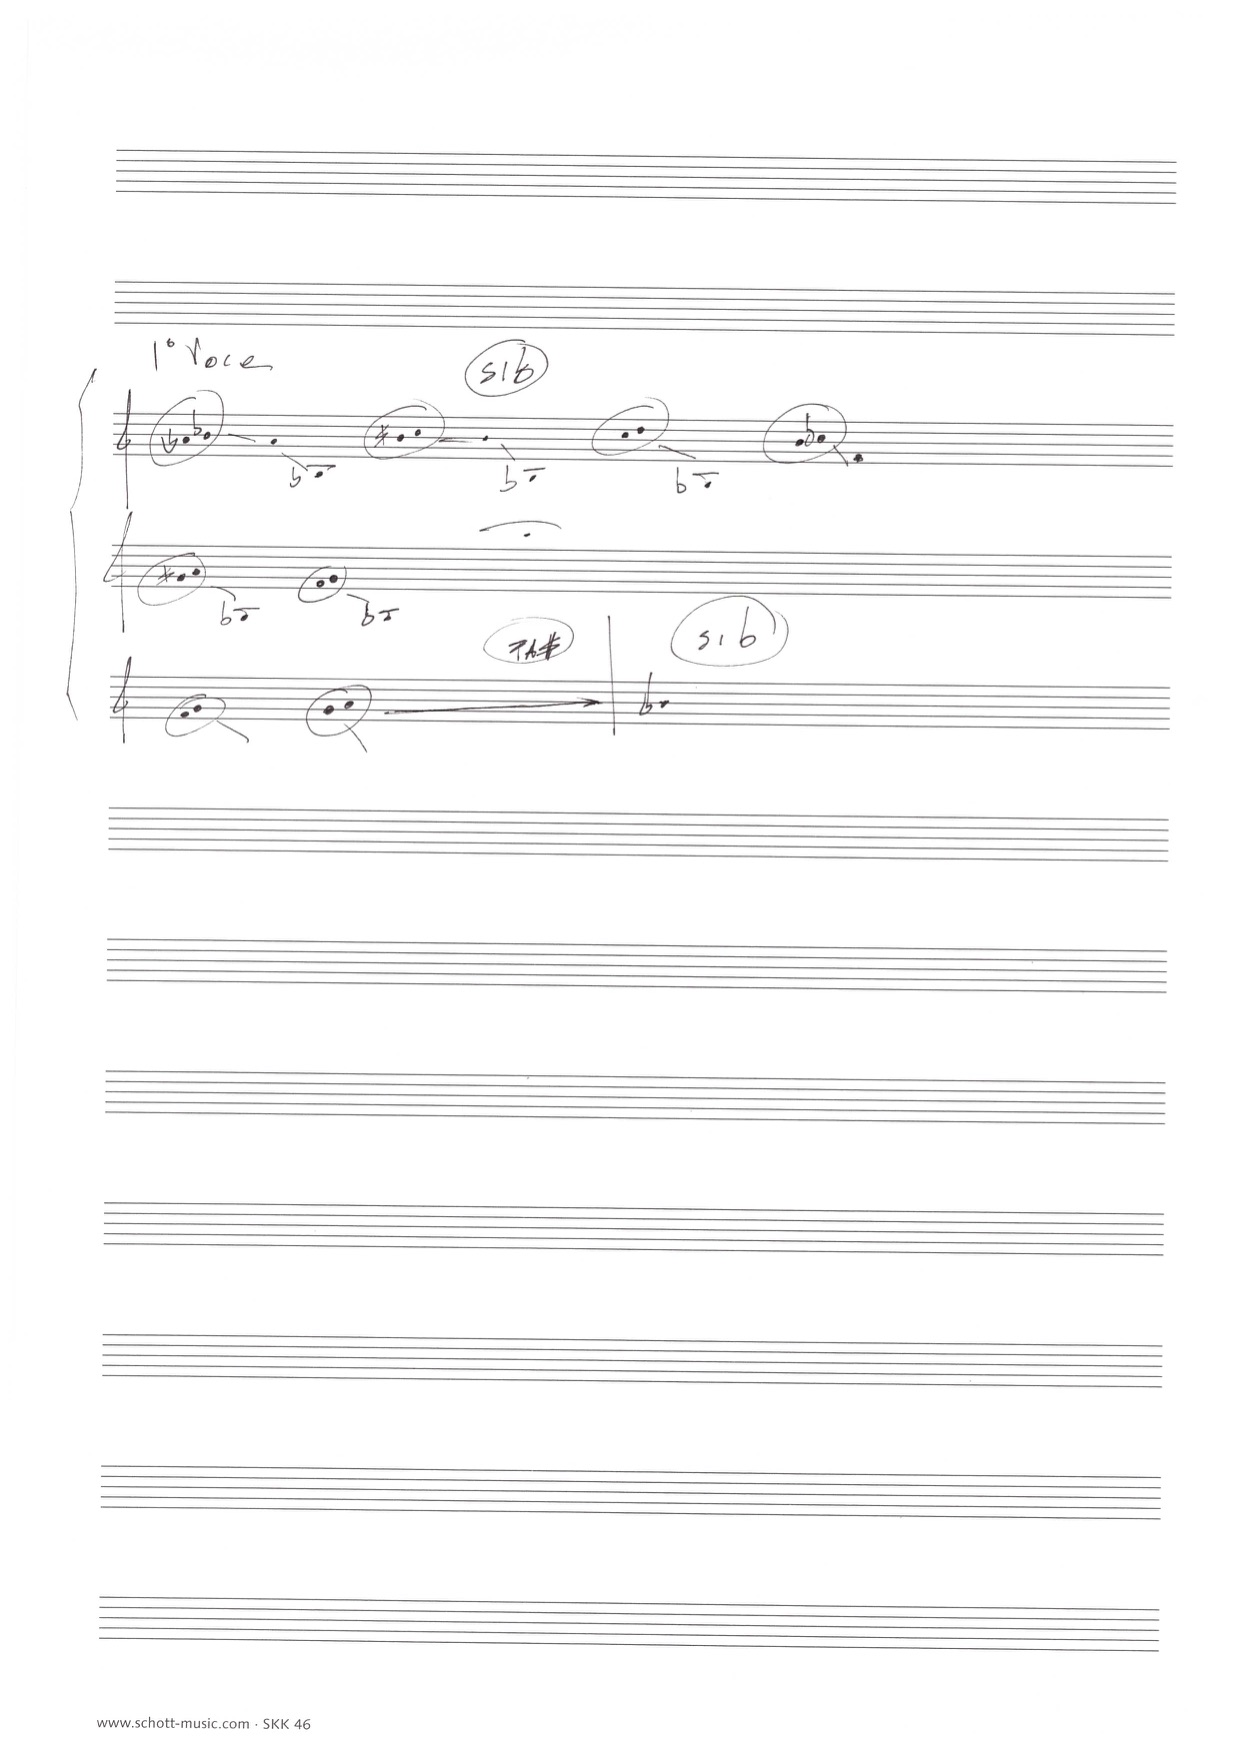 1° Voce
SIb
FA#
SIb
www.schott-music.com · SKK 46